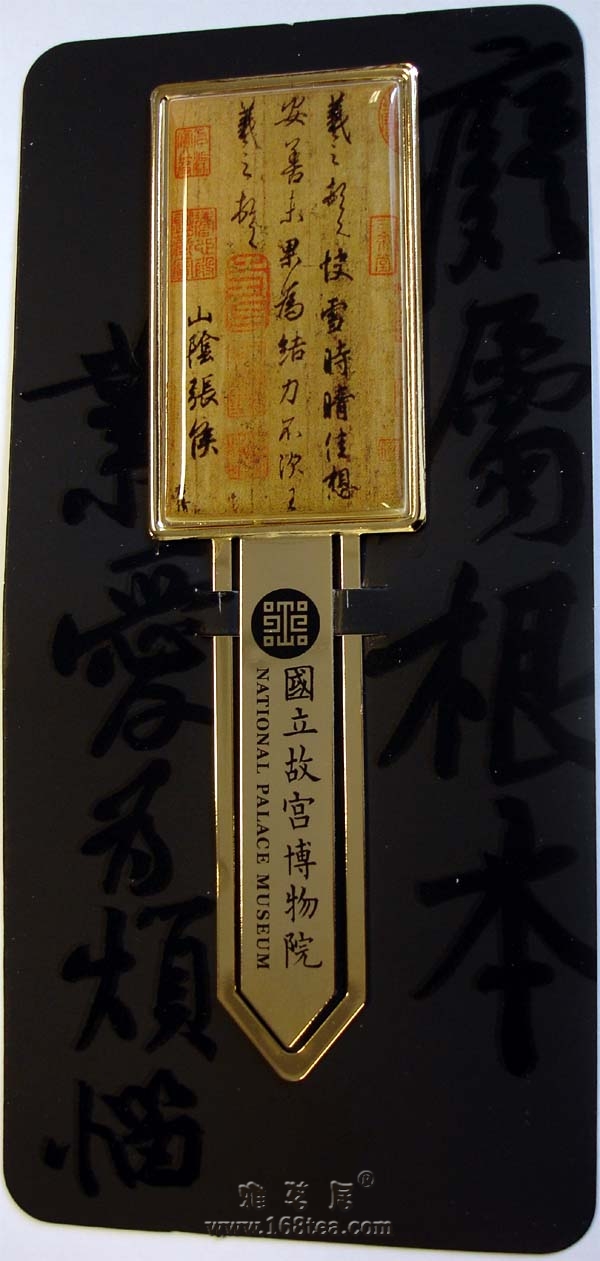 羲之頓首快雪時晴佳想
安善未果為結力不次王
羲之頓首
山陰張侯
國立故宮博物院
NATIONAL PALACE MUSEUM
屬根本
業愛為煩惱
www.168tea.com